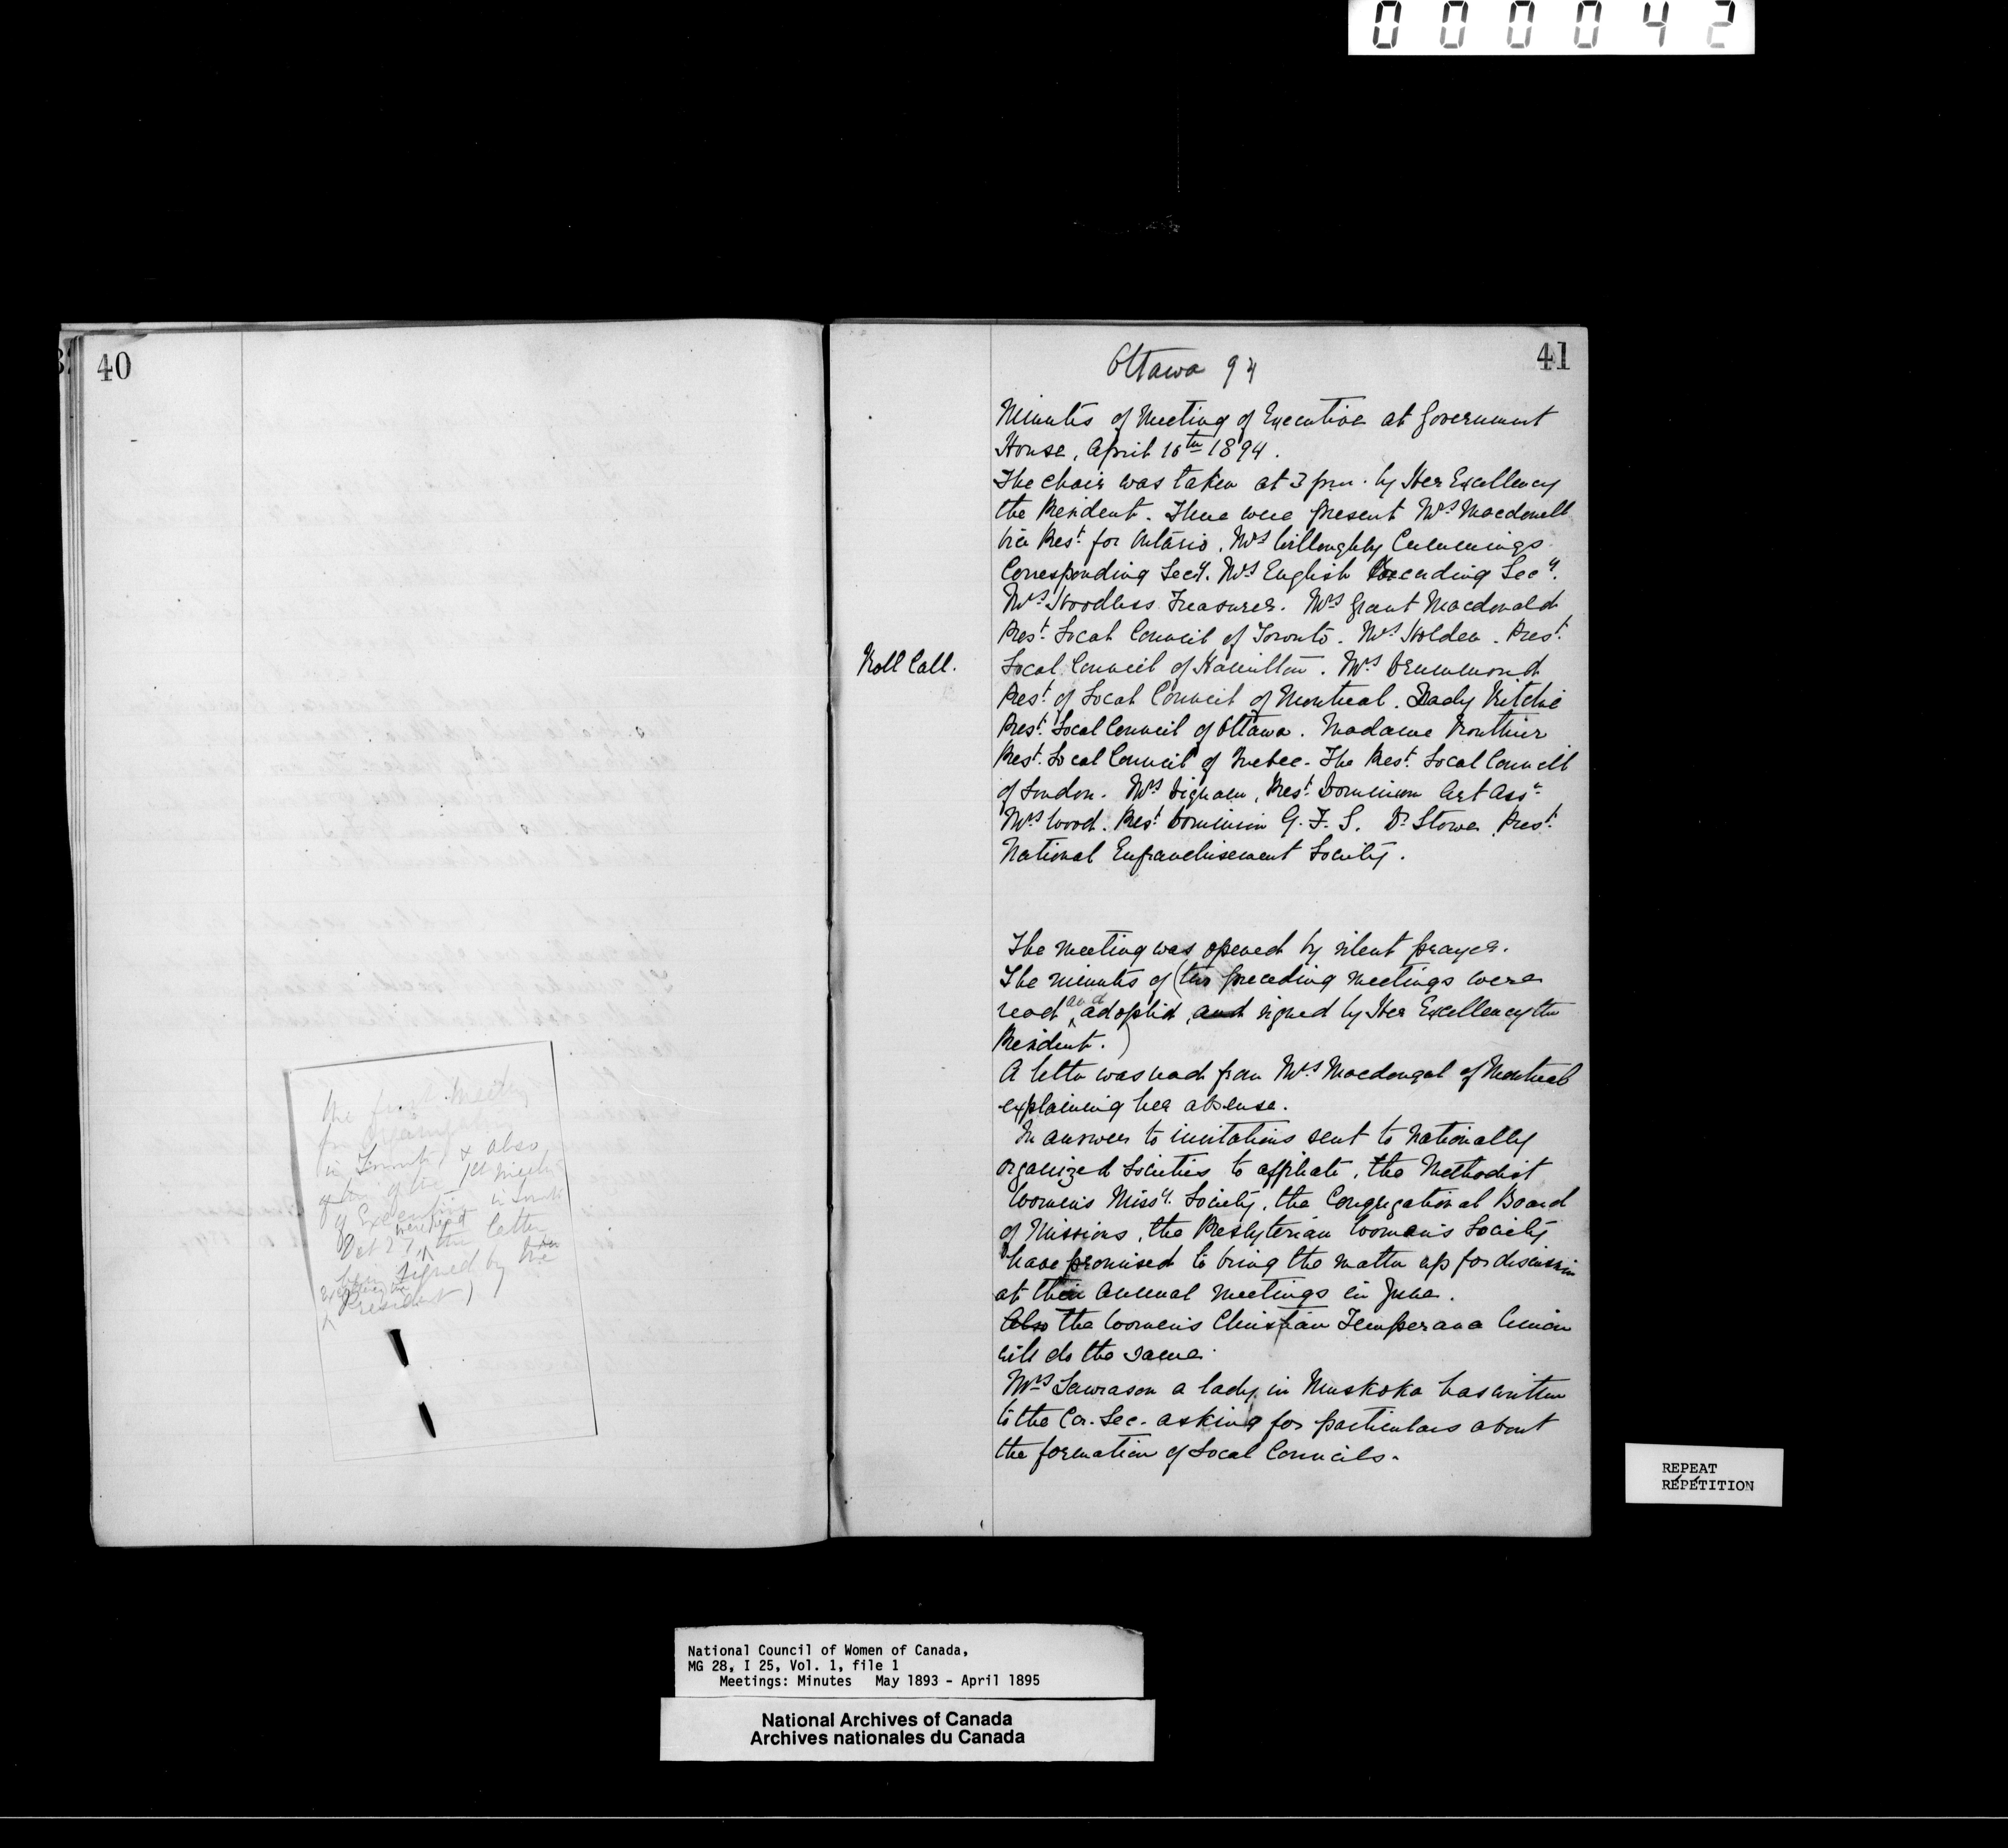 000042
40
the first meeting
for organization
in Toronto, & also
of the 1st meeting
of Executive in Toronto
were read
Oct 27, the latter
being signed by the
President)
41
Ottawa 94
Minutes of Meeting of Executive at Government
House, April 16th 1894.
The chair was taken at 3 p.m. by Her Excellency
the President. There were present Mrs Macdonell
Vice Prest. for Ontario. Mrs Willoughby Cummings
Corresponding Secy. Mrs English Recording Secy.
Mrs Hoodless Treasurer. Mrs Grant Macdonald
Prest. Local Council of Toronto. Mrs Holden. Prest.
Roll Call.
Local Council of Hamilton. Mrs Drummond
Prest. of Local Council of Montreal. Lady Ritchie
Prest. Local Council of Ottawa. Madame Routhier
Prest. Local Council of Quebec. The Prest. Local Council
of London. Mrs Dignam, Prest. Dominion Art Assn
Mrs Wood. Prest Dominion G. F. S. Dr Stowe Prest.
National Enfranchisement Society.
The meeting was opened by silent prayer.
The minutes of (two preceding meetings were
read and adopted, and signed by Her Excellency the
President.)
A letter was read from Mrs Macdougal of Montreal
explaining her absense.
In answer to invitations sent to Nationally
organized Societies to affiliate, the Methodist
Women's Missy. Society, the Congregational Board
of Missions, the Presbyterian Women's Society
have promised to bring the matter up for discussion
at their annual meetings in June.
Also the Women's Christian Temperance Union
will do the same.
Mrs Lawrason a lady in Muskoka has written
to the Cor. Sec. asking for particulars about
the formation of Local Councils.
REPEAT
RÉPÉTITION
National Council of Women of Canada,
MG 28, I 25, Vol. 1, file 1
Meetings: Minutes May 1893 - April 1895
National Archives of Canada
Archives nationales du Canada